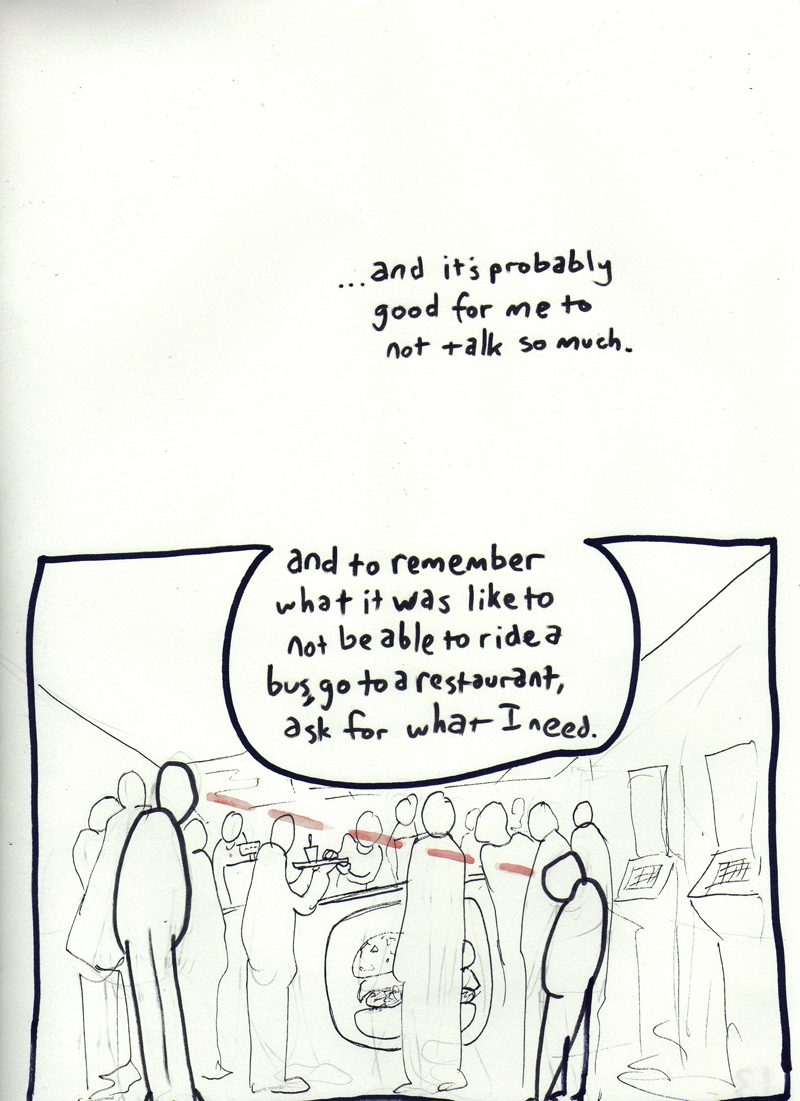 ...and it's probably
good for me to
not talk so much.
and to remember
what it was like to
not be able to ride a
bus, go to a restaurant,
ask for what I need.